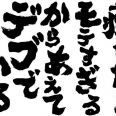 モテすぎる
からあえて
デブでいる